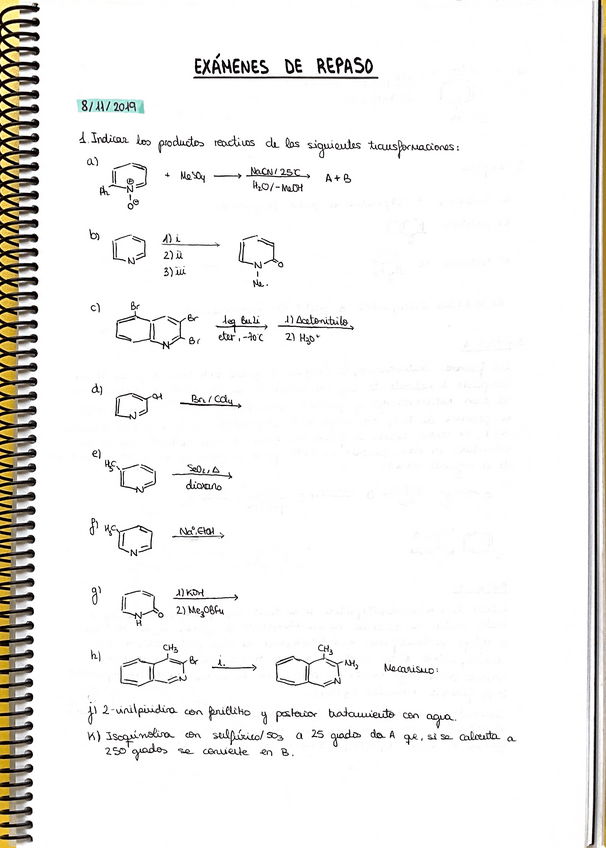 EXÁMENES DE REPASO
8/11/2019
1. Indicar los productos reactivos de las siguientes transformaciones:
a) Ph N⊕ O⊖ + Me2SO4 NaCN/25ºC H2O/-MeOH A + B
b) N 1) i 2) ii 3) iii N O Me.
c) Br Br Br N 1eq BuLi eter, -70ºC 1) Acetonitrilo 2) H3O+
d) OH N Br2/CCl4
e) H3C N SeO2, Δ dioxano
f) H3C N Na°, EtOH
g) N H O 1) KOH 2)
h) CH3 Br N i. CH3 NH2 N Mecanismo:
j) 2-vinilpiridina con fenillitio y posterior tratamiento con agua.
K) Isoquinolina con sulfúrico/SO3 a 25 grados da A que, si se calienta a
250 grados se convierte en B.